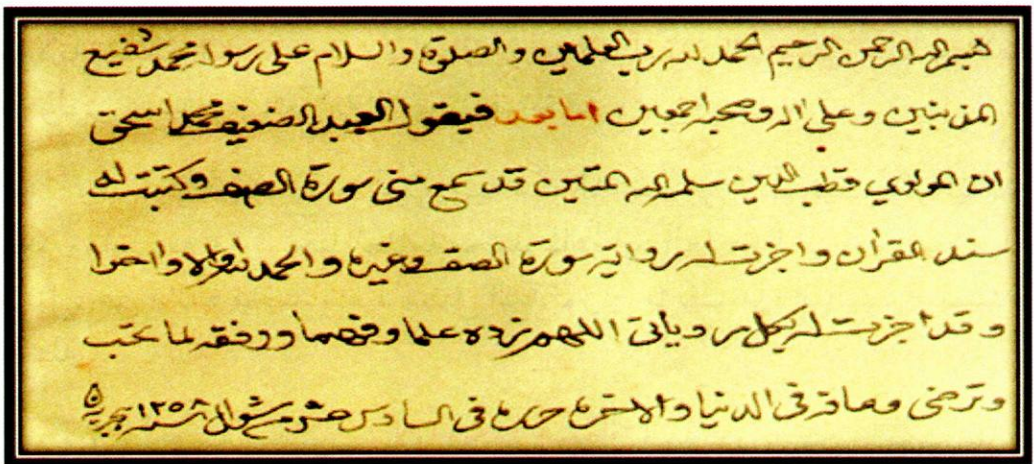 بسم الله الرحمن الرحيم الحمد لله رب العلمين والصلوة والسلام على رسوله محمد شفيع
المذنبين وعلى اله وصحبه اجمعين اما بعد فيقول العبد الضعيف محمد اسحق
ان المولوي قطب الدين سلمه الله المتين قد سمع منى سورة الصف وكتبت له
سند القرآن واجزت له برواية سورة الصف وغيرها والحمد لله اولا واخرا
وقد اجزت له بكل مروياتى اللهم زده علما وفهما ووفقه لما تحب
وترضى وعافه فى الدنيا والاخرة حرره فى السادس عشر من شوال سنة ١٢٥٨ هجرية